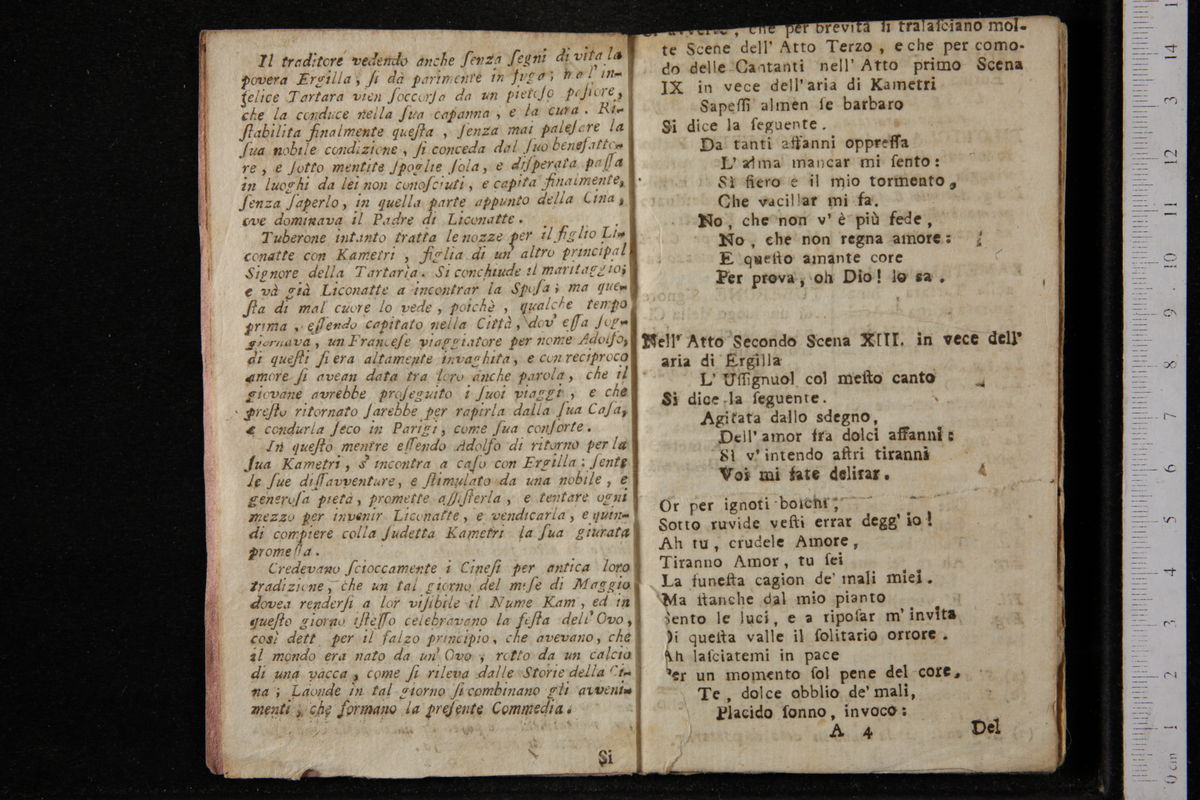 Il traditore vedendo anche ſenza ſegni di vita la
povera Ergilla, ſi dà parimente in fuga; ma l' in-
felice Tartara vien ſoccorſa da un pietoſo paſtore,
che la conduce nella ſua capanna, e la cura. Ri-
ſtabilita finalmente queſta, ſenza mai paleſare la
ſua nobile condizione, ſi conceda dal ſuo benefatto-
re, e ſotto mentite ſpoglie ſola, e diſperata paſſa
in luoghi da lei non conoſciuti, e capita finalmente,
ſenza ſaperlo, in quella parte appunto della Cina,
ove dominava il Padre di Liconatte.
Tuberone intanto tratta le nozze per il figlio Li-
conatte con Kametri, figlia di un' altro principal
Signore della Tartaria. Si conchiude il maritaggio;
e và già Liconatte a incontrar la Spoſa; ma que-
ſta di mal cuore lo vede, poichè, qualche tempo
prima, eſſendo capitato nella Città, dov' eſſa ſog-
giornava, un Franceſe viaggiatore per nome Adolfo,
di queſti ſi era altamente invaghita, e con reciproco
amore ſi avean data tra loro anche parola, che il
giovane avrebbe proſeguito i ſuoi viaggi, e che
preſto ritornato ſarebbe per rapirla dalla ſua Caſa,
e condurla ſeco in Parigi, come ſua conſorte.
In queſto mentre eſſendo Adolfo di ritorno per la
ſua Kametri, s' incontra a caſo con Ergilla; ſente
le ſue diſavventure, e ſtimulato da una nobile, e
generoſa pietà, promette aſſiſterla, e tentare ogni
mezzo per invenir Liconatte, e vendicarla, e quin-
di compiere colla ſudetta Kametri la ſua giurata
promeſſa.
Credevano ſcioccamente i Cineſi per antica loro
tradizione, che un tal giorno del meſe di Maggio
dovea renderſi a lor viſibile il Nume Kam, ed in
queſto giorno iſteſſo celebravano la feſta dell' Ovo,
così dett per il falzo principio, che avevano, che
il mondo era nato da un' Ovo, rotto da un calcio
di una vacca, come ſi rileva dalle Storie della Ci-
na; Laonde in tal giorno ſi combinano gli avveni-
menti, che formano la preſente Commedia.
Si
avverte, che per brevità ſi tralaſciano mol-
te Scene dell' Atto Terzo, e che per como-
do delle Cantanti nell' Atto primo Scena
IX in vece dell' aria di Kametri
Sapeſſi almen ſe barbaro
Si dice la ſeguente.
Da tanti affanni oppreſſa
L' alma mancar mi ſento:
Sì fiero e il mio tormento,
Che vacillar mi fa.
No, che non v' è più fede,
No, che non regna amore:
E queſto amante core
Per prova, oh Dio! lo sa.
Nell' Atto Secondo Scena XIII. in vece dell'
aria di Ergilla
L' Uſſignuol col meſto canto
Si dice la ſeguente.
Agitata dallo sdegno,
Dell' amor fra dolci affanni:
Sì v' intendo aſtri tiranni
Voi mi fate delirar.
Or per ignoti boſchi,
Sotto ruvide veſti errar degg' io!
Ah tu, crudele Amore,
Tiranno Amor, tu ſei
La funeſta cagion de' mali miei.
Ma ſtanche dal mio pianto
Sento le luci, e a ripoſar m' invita
Di queſta valle il ſolitario orrore.
Ah laſciatemi in pace
Per un momento ſol pene del core.
Te, dolce obblio de' mali,
Placido ſonno, invoco:
A 4 Del
0 cm 1 2 3 4 5 6 7 8 9 10 11 12 3 14